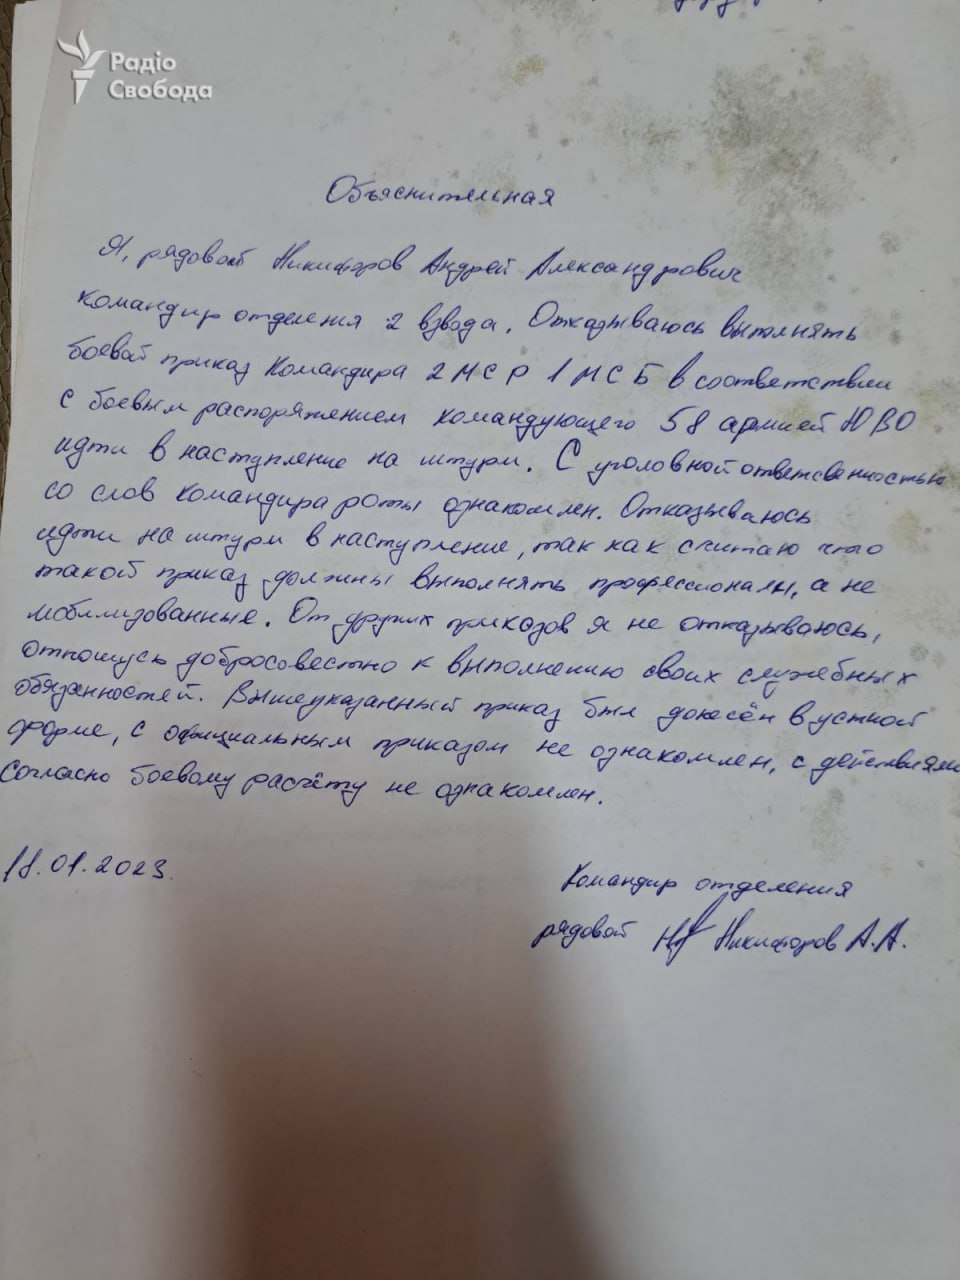 Радіо
Свобода
Объяснительная
Я, рядовой Никифоров Андрей Александрович
командир отделения 2 взвода. Отказываюсь выполнять
боевой приказ командира 2 МСР 1 МСБ в соответствии
с боевым распоряжением командующего 58 армией ЮВО
идти в наступление на штурм. С уголовной ответсвенностью
со слов командира роты ознакомлен. Отказываюсь
идти на штурм в наступление, так как считаю что
такой приказ должны выполнять профессионалы, а не
мобилизованные. От других приказов я не отказываюсь,
отношусь добросовестно к выполнению своих служебных
обязанностей. Вышеуказанный приказ был донесён в устной
форме, с официальным приказом не ознакомлен, с действиями
Согласно боевому расчёту не ознакомлен.
.01.2023.
Командир отделения
рядовой Никифоров А.А.